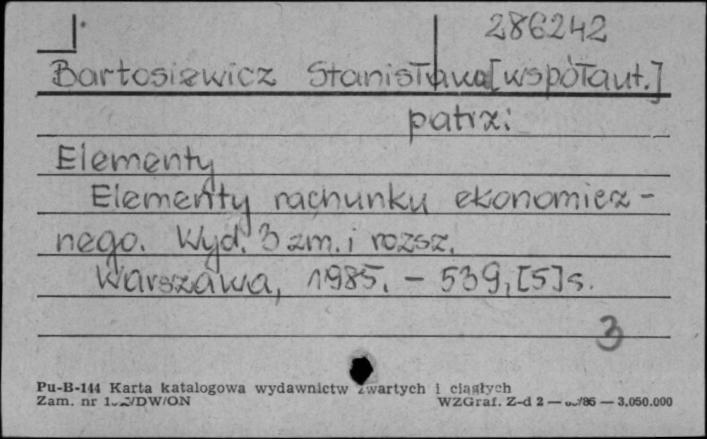 286242
Bartosiewicz Stanisława [współaut.]
patrz:
Elementy
Elementy rachunku ekonomicz-
nego. Wyd. 3 zm. i rozsz.
Warszawa, 1985. - 539, [5] s.
3
Pu-B-144 Karta katalogowa wydawnictw zwartych i ciągłych
Zam. nr WZGraf. Z-d 2 — /86 — 3.050.000